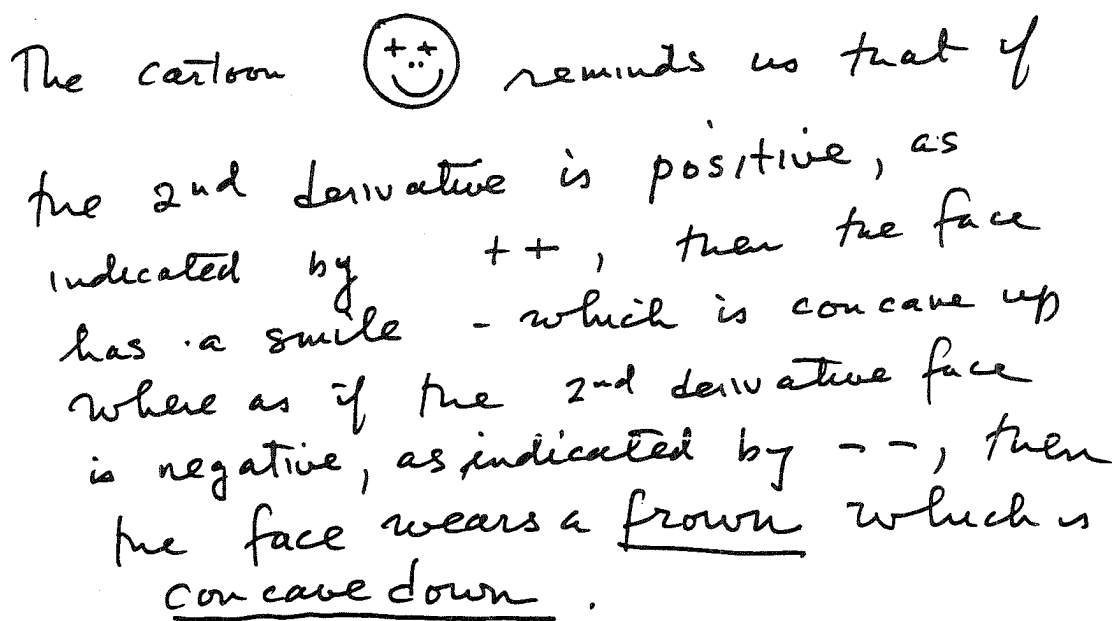 The cartoon ++ reminds us that if
the 2nd derivative is positive, as
indicated by ++, then the face
has a smile - which is concave up
where as if the 2nd derivative face
is negative, as indicated by --, then
the face wears a frown which is
concave down.